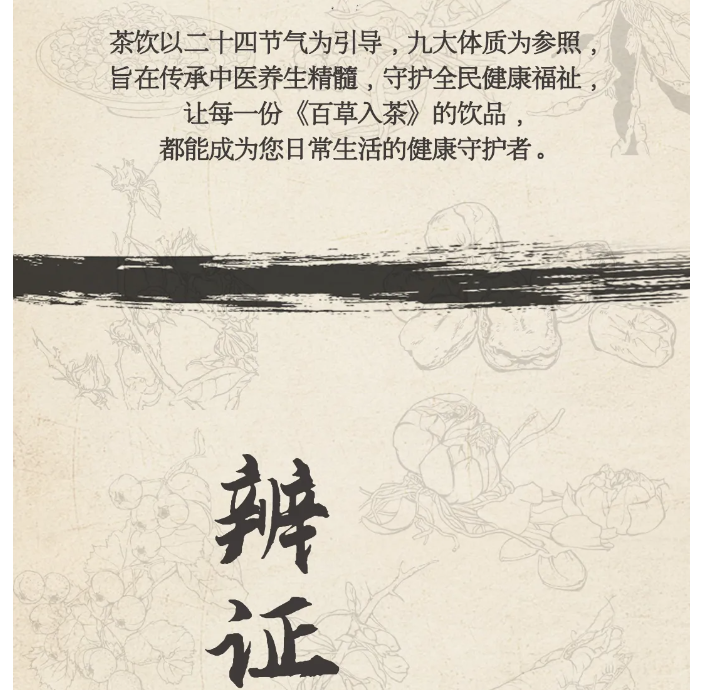 茶饮以二十四节气为引导，九大体质为参照，
旨在传承中医养生精髓，守护全民健康福祉，
让每一份《百草入茶》的饮品，
都能成为您日常生活的健康守护者。
辨
证